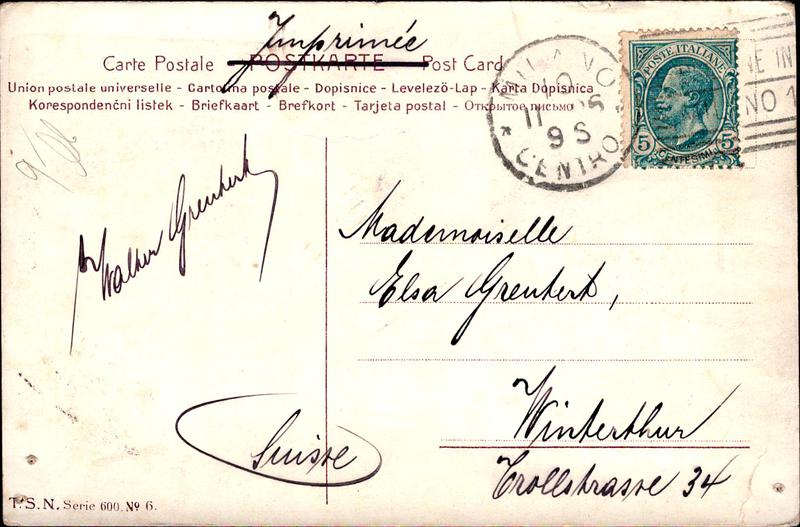 Imprimée
Carte Postale POSTKARTE Post Card
Union postale universelle - Cartolina postale - Dopisnice - Levelezö-Lap - Karta Dopisnica
Korespondenční listek - Briefkaart - Brefkort - Tarjeta postal - Открытое письмо
MILANO
11
9S
* CENTRO *
POSTE ITALIANE
5 CENTESIMI 5
Walter Greutert
Mademoiselle
Elsa Greutert,
Winterthur
Trollstrasse 34
Suisse
T.S.N. Serie 600. № 6.